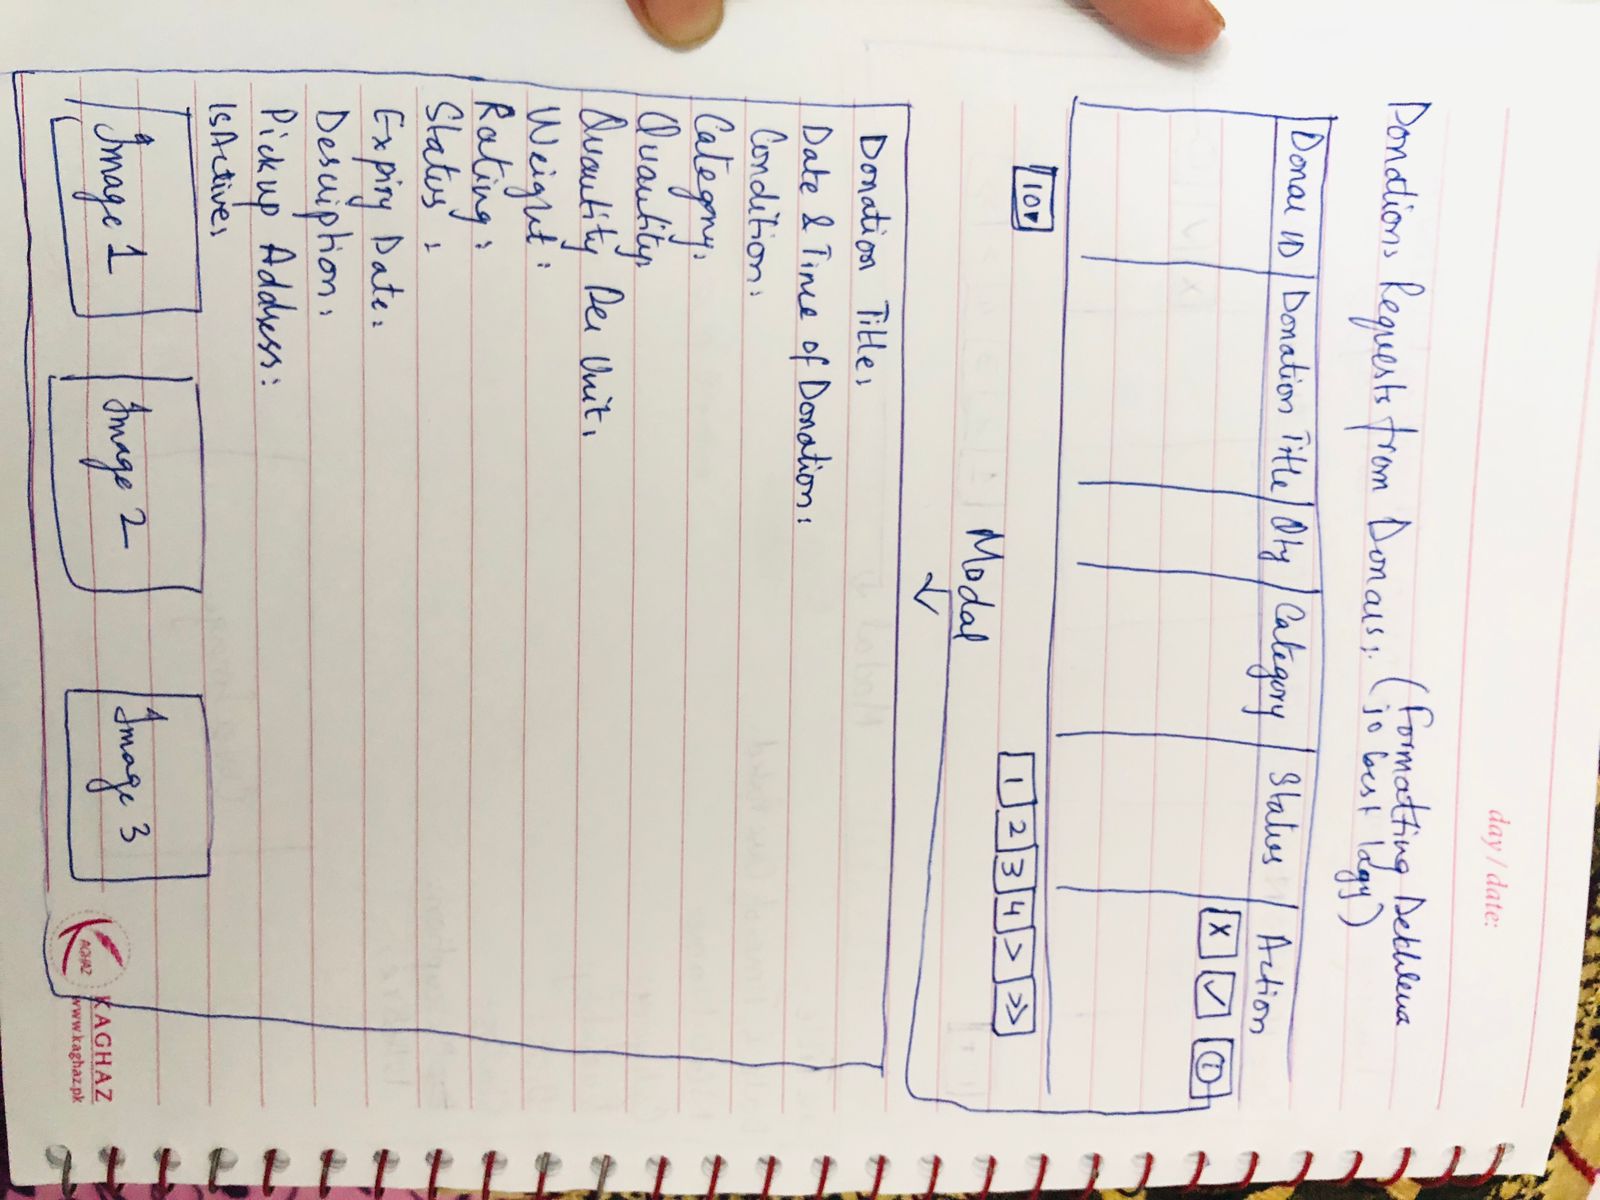 day / date:
Donations Requests from Donors: (Formatting Dekhlena
jo best lagy)
Donor ID Donation Title Qty Category Status Action
x ✓ i
10▾
1 2 3 4 > >>
Modal
↓
Donation Title:
Date & Time of Donation:
Condition:
Category:
Quantity:
Quantity Per Unit:
Weight:
Rating:
Status:
Expiry Date:
Description:
Pickup Address:
IsActive:
Image 1 Image 2 Image 3
KAGHAZ
KAGHAZ
www.kaghaz.pk